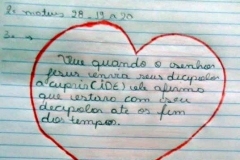 R: mateus 28-19 a 20
3= →
Que quando o senhor
Jesus envia seus dicipolos
a cupris (IDE) ele afirma
que estara com seu
decipolos até os fim
dos tempos.